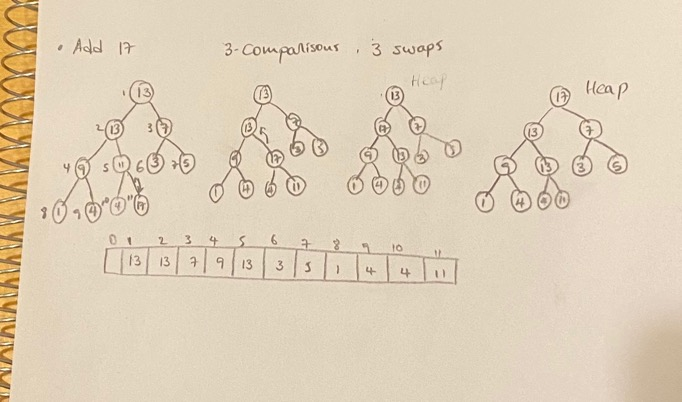 • Add 17 3-Comparisons, 3 swaps
Heap
Heap
1 13
2 13 3 7
4 9 5 11 6 3 7 5
8 1 9 4 10 4 11 17
13
13 7
9 17 3 5
1 4 4 11
13
17 7
9 13 3 5
1 4 4 11
17
13 7
9 13 3 5
1 4 4 11
0 1 2 3 4 5 6 7 8 9 10 11
13 13 7 9 13 3 5 1 4 4 11